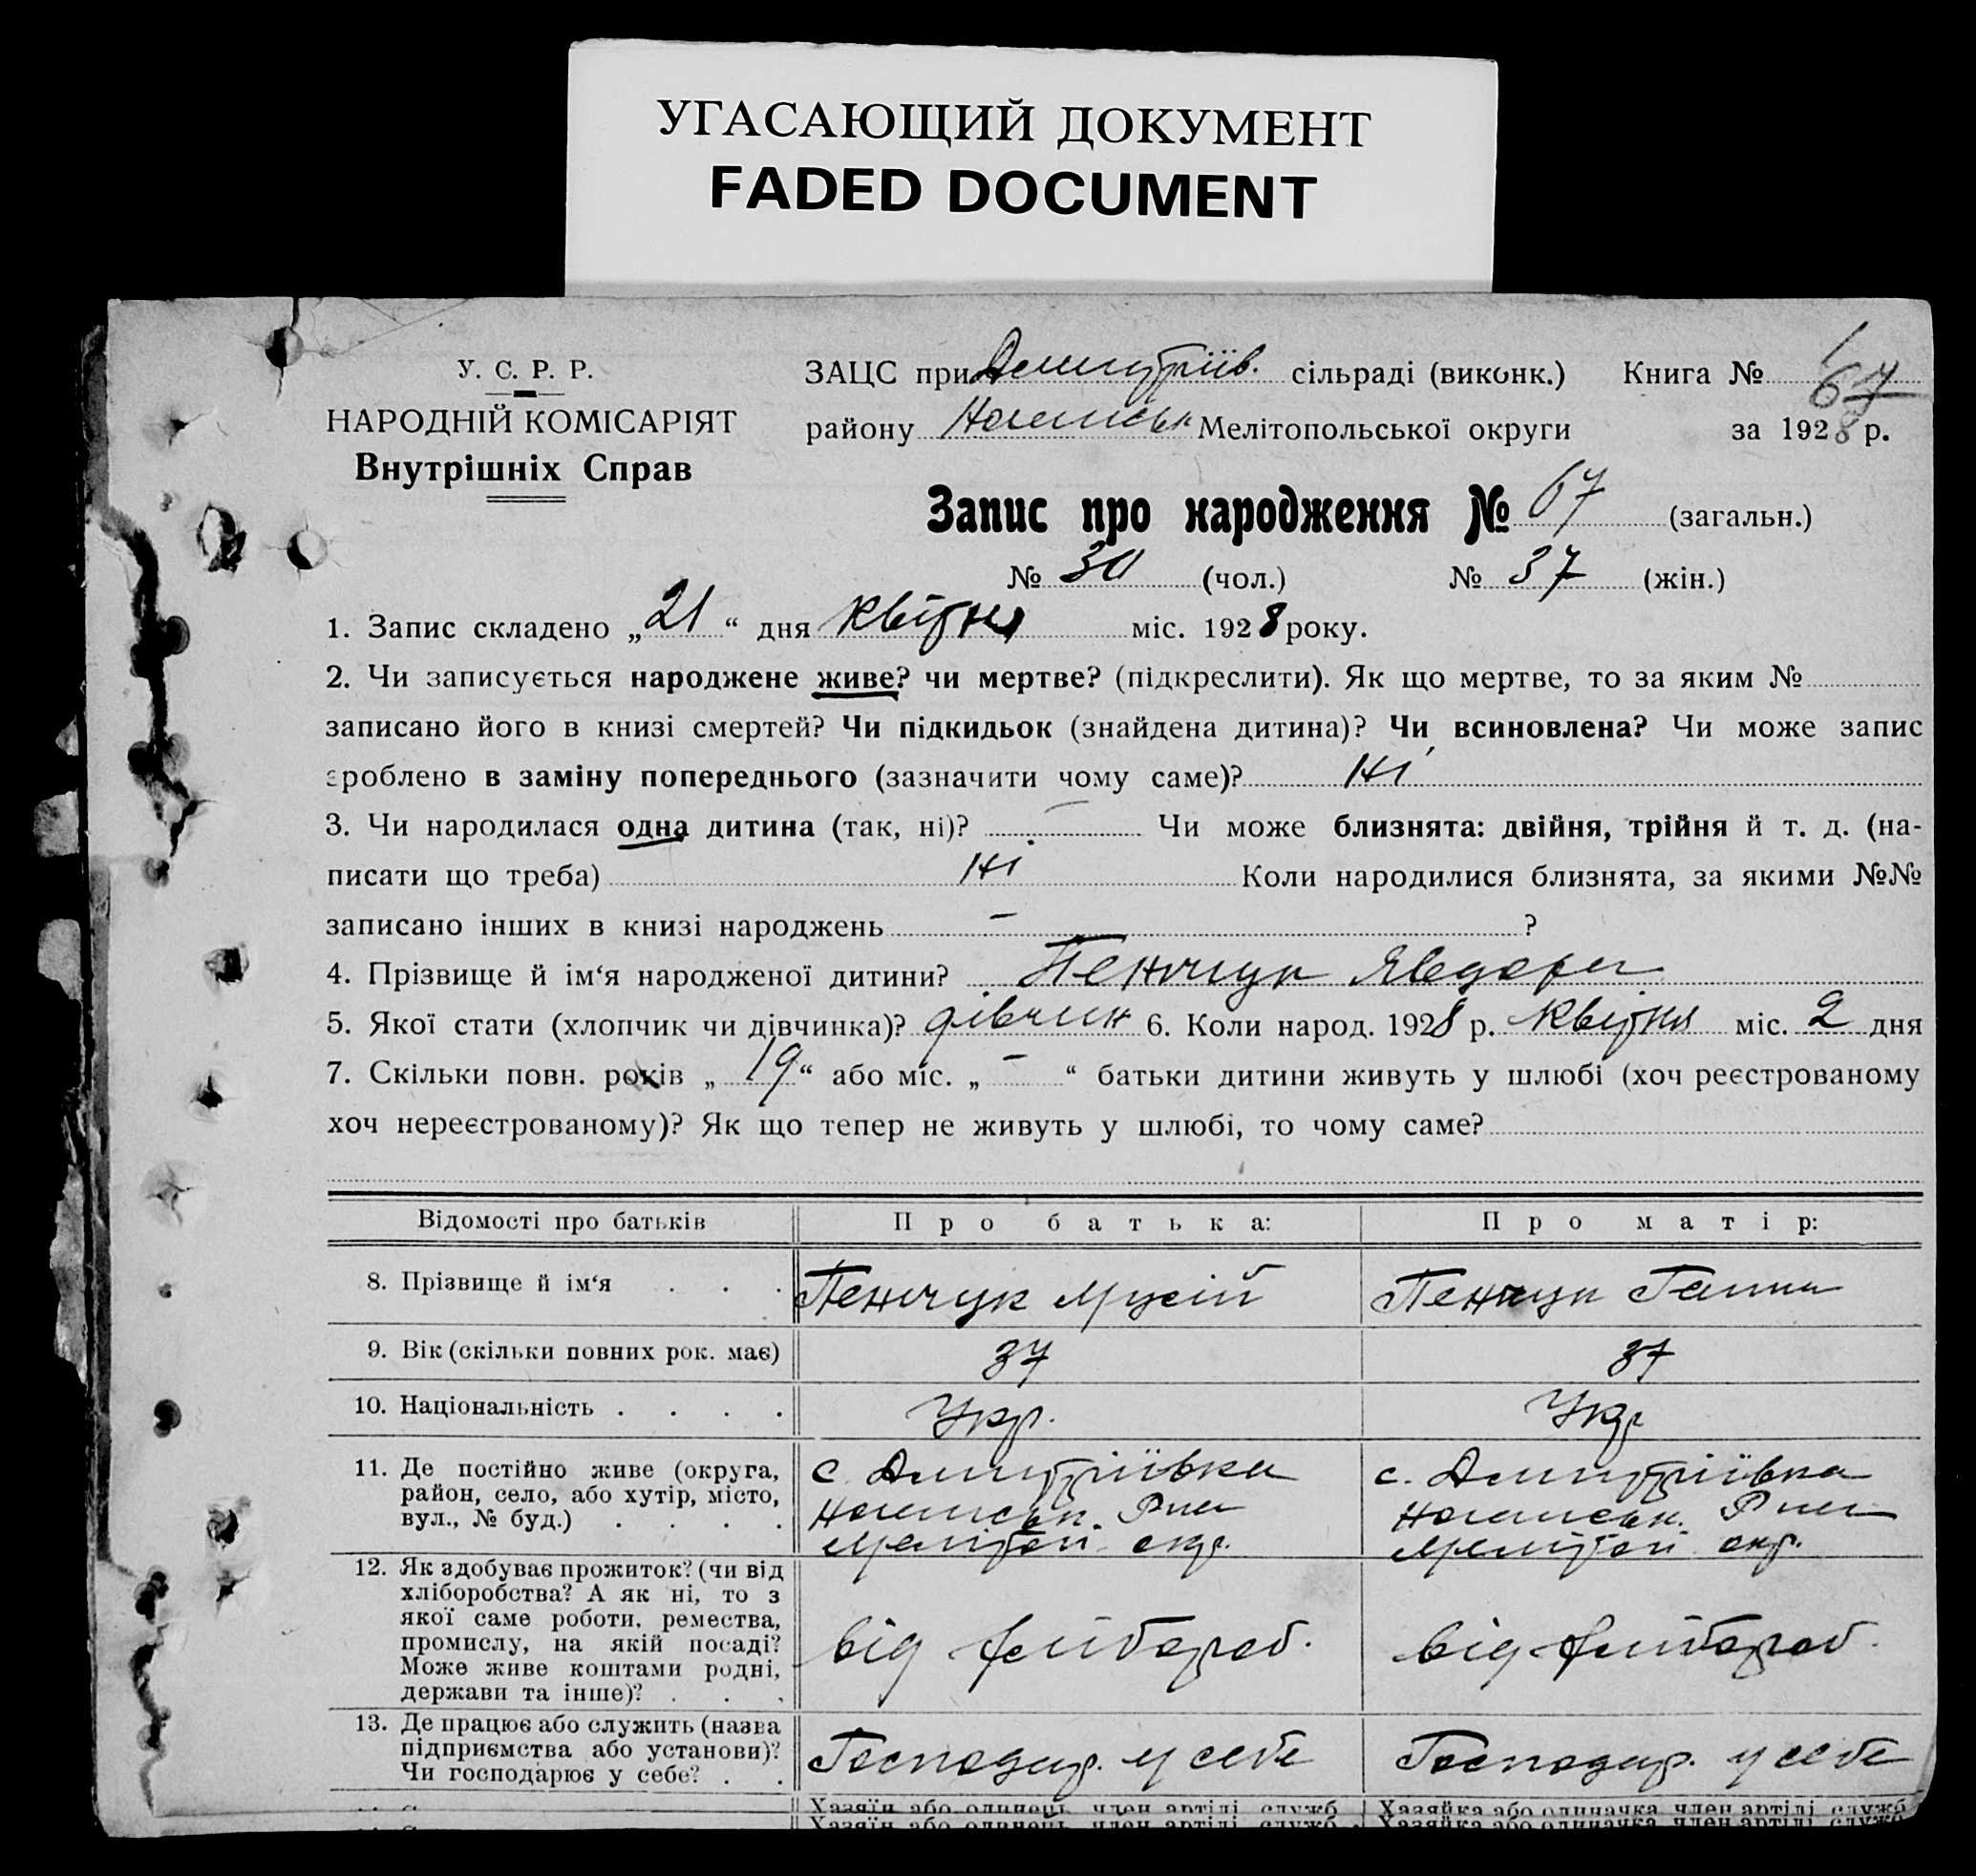 УГАСАЮЩИЙ ДОКУМЕНТ
FADED DOCUMENT
У. С. Р. Р.
НАРОДНІЙ КОМІСАРІЯТ
Внутрішніх Справ
ЗАЦС при Дмитріїв. сільраді (виконк.) Книга №
67
району Ногайськ Мелітопольської округи за 1928 р.
Запис про народження № 67 (загальн.)
№ 30 (чол.) № 37 (жін.)
1. Запис складено „21“ дня квітня міс. 1928 року.
2. Чи записується народжене живе? чи мертве? (підкреслити). Як що мертве, то за яким №
записано його в книзі смертей? Чи підкидьок (знайдена дитина)? Чи всиновлена? Чи може запис
зроблено в заміну попереднього (зазначити чому саме)? ні
3. Чи народилася одна дитина (так, ні)? — Чи може близнята: двійня, трійня й т. д. (на-
писати що треба) ні Коли народилися близнята, за якими №№
записано інших в книзі народжень — ?
4. Прізвище й ім‘я народженої дитини? Пенчук Явдоха
5. Якої стати (хлопчик чи дівчинка)? дівчин 6. Коли народ. 1928 р. квітня міс. 2 дня
7. Скільки повн. років „19“ або міс. „—“ батьки дитини живуть у шлюбі (хоч реєстрованому
хоч нереєстрованому)? Як що тепер не живуть у шлюбі, то чому саме?
Відомості про батьків Про батька: Про матір:
8. Прізвище й ім‘я . . . Пенчук Мусій Пенчук Ганна
9. Вік (скільки повних рок. має) 37 37
10. Національність . . . . Укр. Укр
11. Де постійно живе (округа,
район, село, або хутір, місто,
вул., № буд.) . . . .
с. Дмитріївка
Ногайськ. Р-на
Мелітоп. окр.
с. Дмитріївка
Ногайськ. Р-на
Мелітоп. окр.
12. Як здобуває прожиток? (чи від
хліборобства? А як ні, то з
якої саме роботи, ремества,
промислу, на якій посаді?
Може живе коштами родні,
держави та інше)? . . .
від хлібороб.
від хлібороб.
13. Де працює або служить (назва
підприємства або установи)?
Чи господарює у себе? . .
Господар. у себе
Господар. у себе
Хазяїн або одинець, член артілі, служб. Хазяйка або одиначка, член артілі, служб